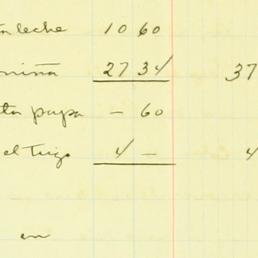 ta leche 10 60
niña 27 34 37
ta papa – 60
el trigo 4 – 4
en